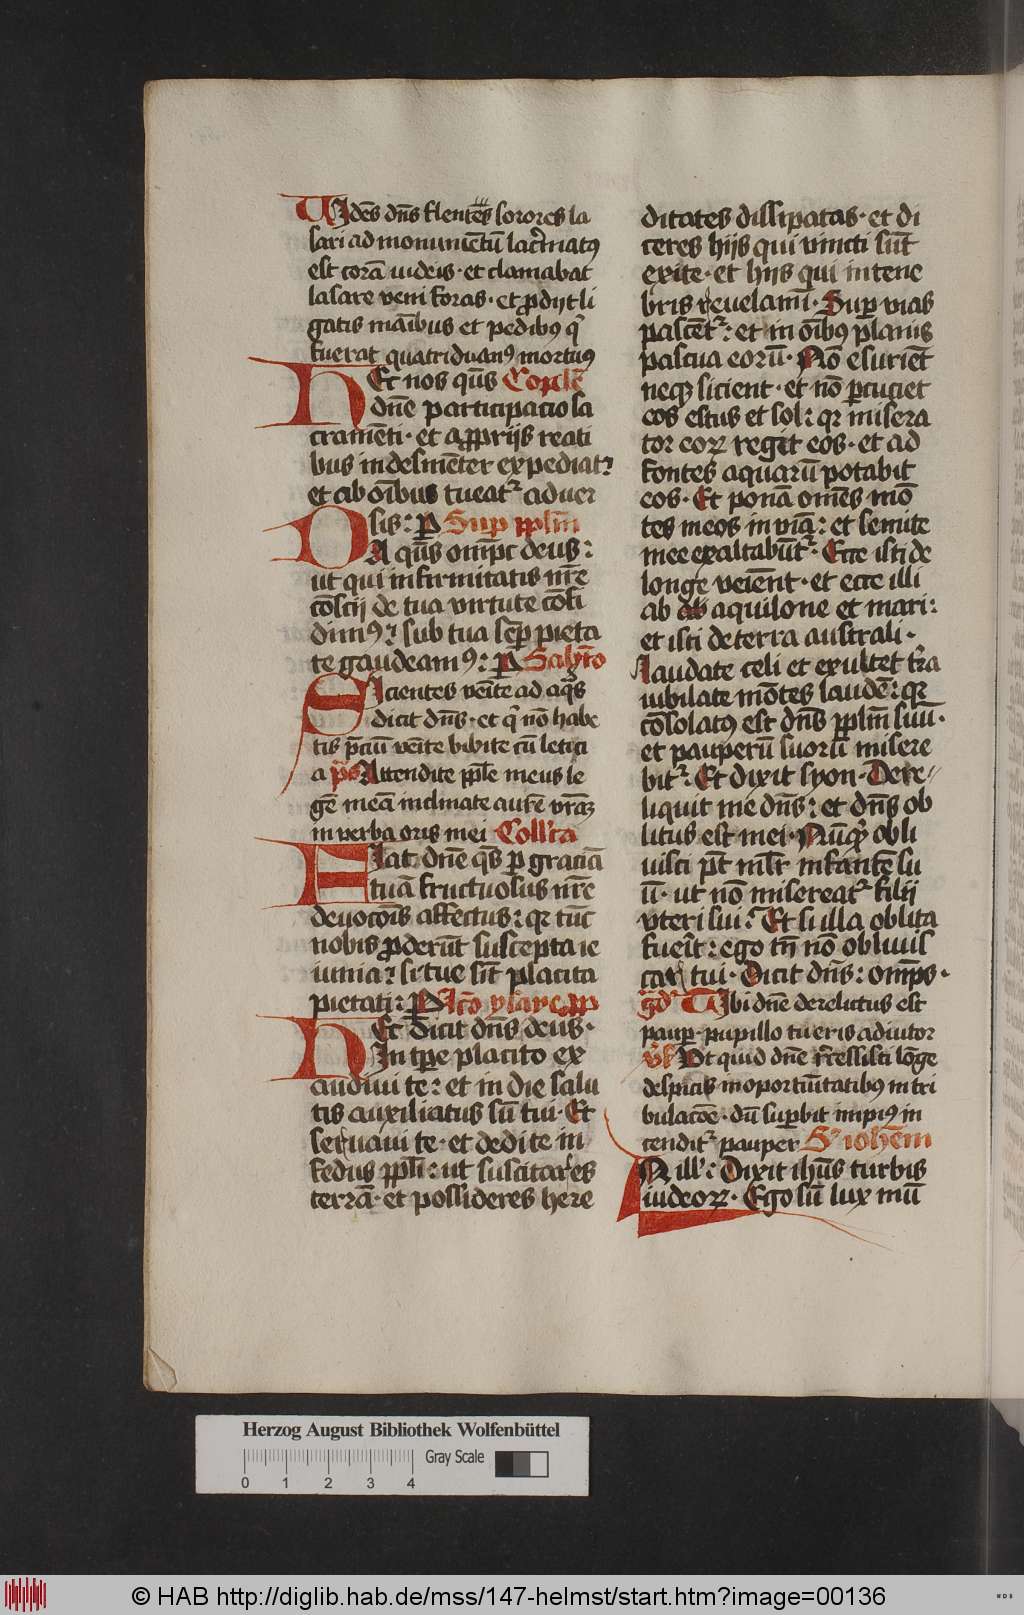 Uidēs dn̄s flentēs sorores la
sari ad monumētū lac̄matꝰ
est corā iudeis · et clamabat
lasare veni foras · et ꝓdijt li
gatis manībus et pedibꝰ qͥ
fuerat quatriduanꝰ mortuꝰ
Hec nos qs̄ Cōplē
dn̄e participacio sa
cramēti · et a ꝓprijs reati
bus indesinēter expediatꝰ
et ab oībus tueatᷣ aduer
sis : P Sup ppl̄m
Da qs̄ omp̄c deus :
ut qui infirmitatis nr̄e
cōscij de tua virtute cōfi
dimꝰ : sub tua semp̄ pieta
te gaudeamꝰ : P Sabb̄to
Sicientes veīte ad aqͣs
dicit dn̄s · et qͥ nō habe
tis p̄ciū veīte bibite cū letici
a p̄s Attendite pple meus le
gē meā inclinate aurē vrāꝫ
in verba oris mei Coll̄cta
Fiat dn̄e qs̄ ꝑ graciā
tuā fructuosus nr̄e
deuocōis affectus : qꝛ tūc
nobis ꝓderūt suscepta ie
iunia : si tue sīt placita
pietati : P Lc̄o ysaye pp
Hec dicit dn̄s deus ·
In tp̄e placito ex
audiui te : et in die salu
tis auxiliatus sū tui · Et
seruaui te · et dedi te in
fedus ppl̄i : ut suscitares
terrā · et possideres here
ditates dissipatas · et di
ceres hijs qui vincti sūt
exite · et hijs qui in tene
bris reuelamī · Suꝑ vias
pascētᷣ : et in oībꝰ planis
pascua eorū · Nō esuriēt
neqꝫ sicient · et nō ꝑcuciet
eos estus et sol : qꝛ misera
tor eoꝝ reget eos · et ad
fontes aquarū potabit
eos · Et ponā omēs mō
tes meos in viā : et semite
mee exaltabūtᷣ · Ecce isti de
longe veiēnt · et ecce illi
ab ab aquilone et mari :
et isti de terra australi ·
Laudate celi et exultet tr̄a
iubilate mōtes laudē : qꝛ
cōsolatꝰ est dn̄s ppl̄m suū ·
et pauperū suorū misere
bitᷣ · Et dixit syon · Dere
liquit me dn̄s : et dn̄s ob
litus est mei · Nūqͥd obli
uisci pt̄ ml̄r infantē su
ū · ut nō misereatᷣ filij
vteri sui : Et si illa oblita
fueīt : ego tn̄ nō obliuis
car tui · Dicit dn̄s : omp̄s ·
gͣd Tibi dn̄e derelictus est
paupꝫ · pupillo tu eris adiutor
v̄s Ut quid dn̄e r̄cessisti lōge
despicis in oportūitatibꝰ in tri
bulacōe · dū suꝑbit impiꝰ in
cenditᷣ pauper S᷒ ioh̄em
In ill̓ : Dixit ih̄us turbis
iudeoꝝ · Ego sū lux mū
Herzog August Bibliothek Wolfenbüttel
Gray Scale
0 1 2 3 4
© HAB http://diglib.hab.de/mss/147-helmst/start.htm?image=00136